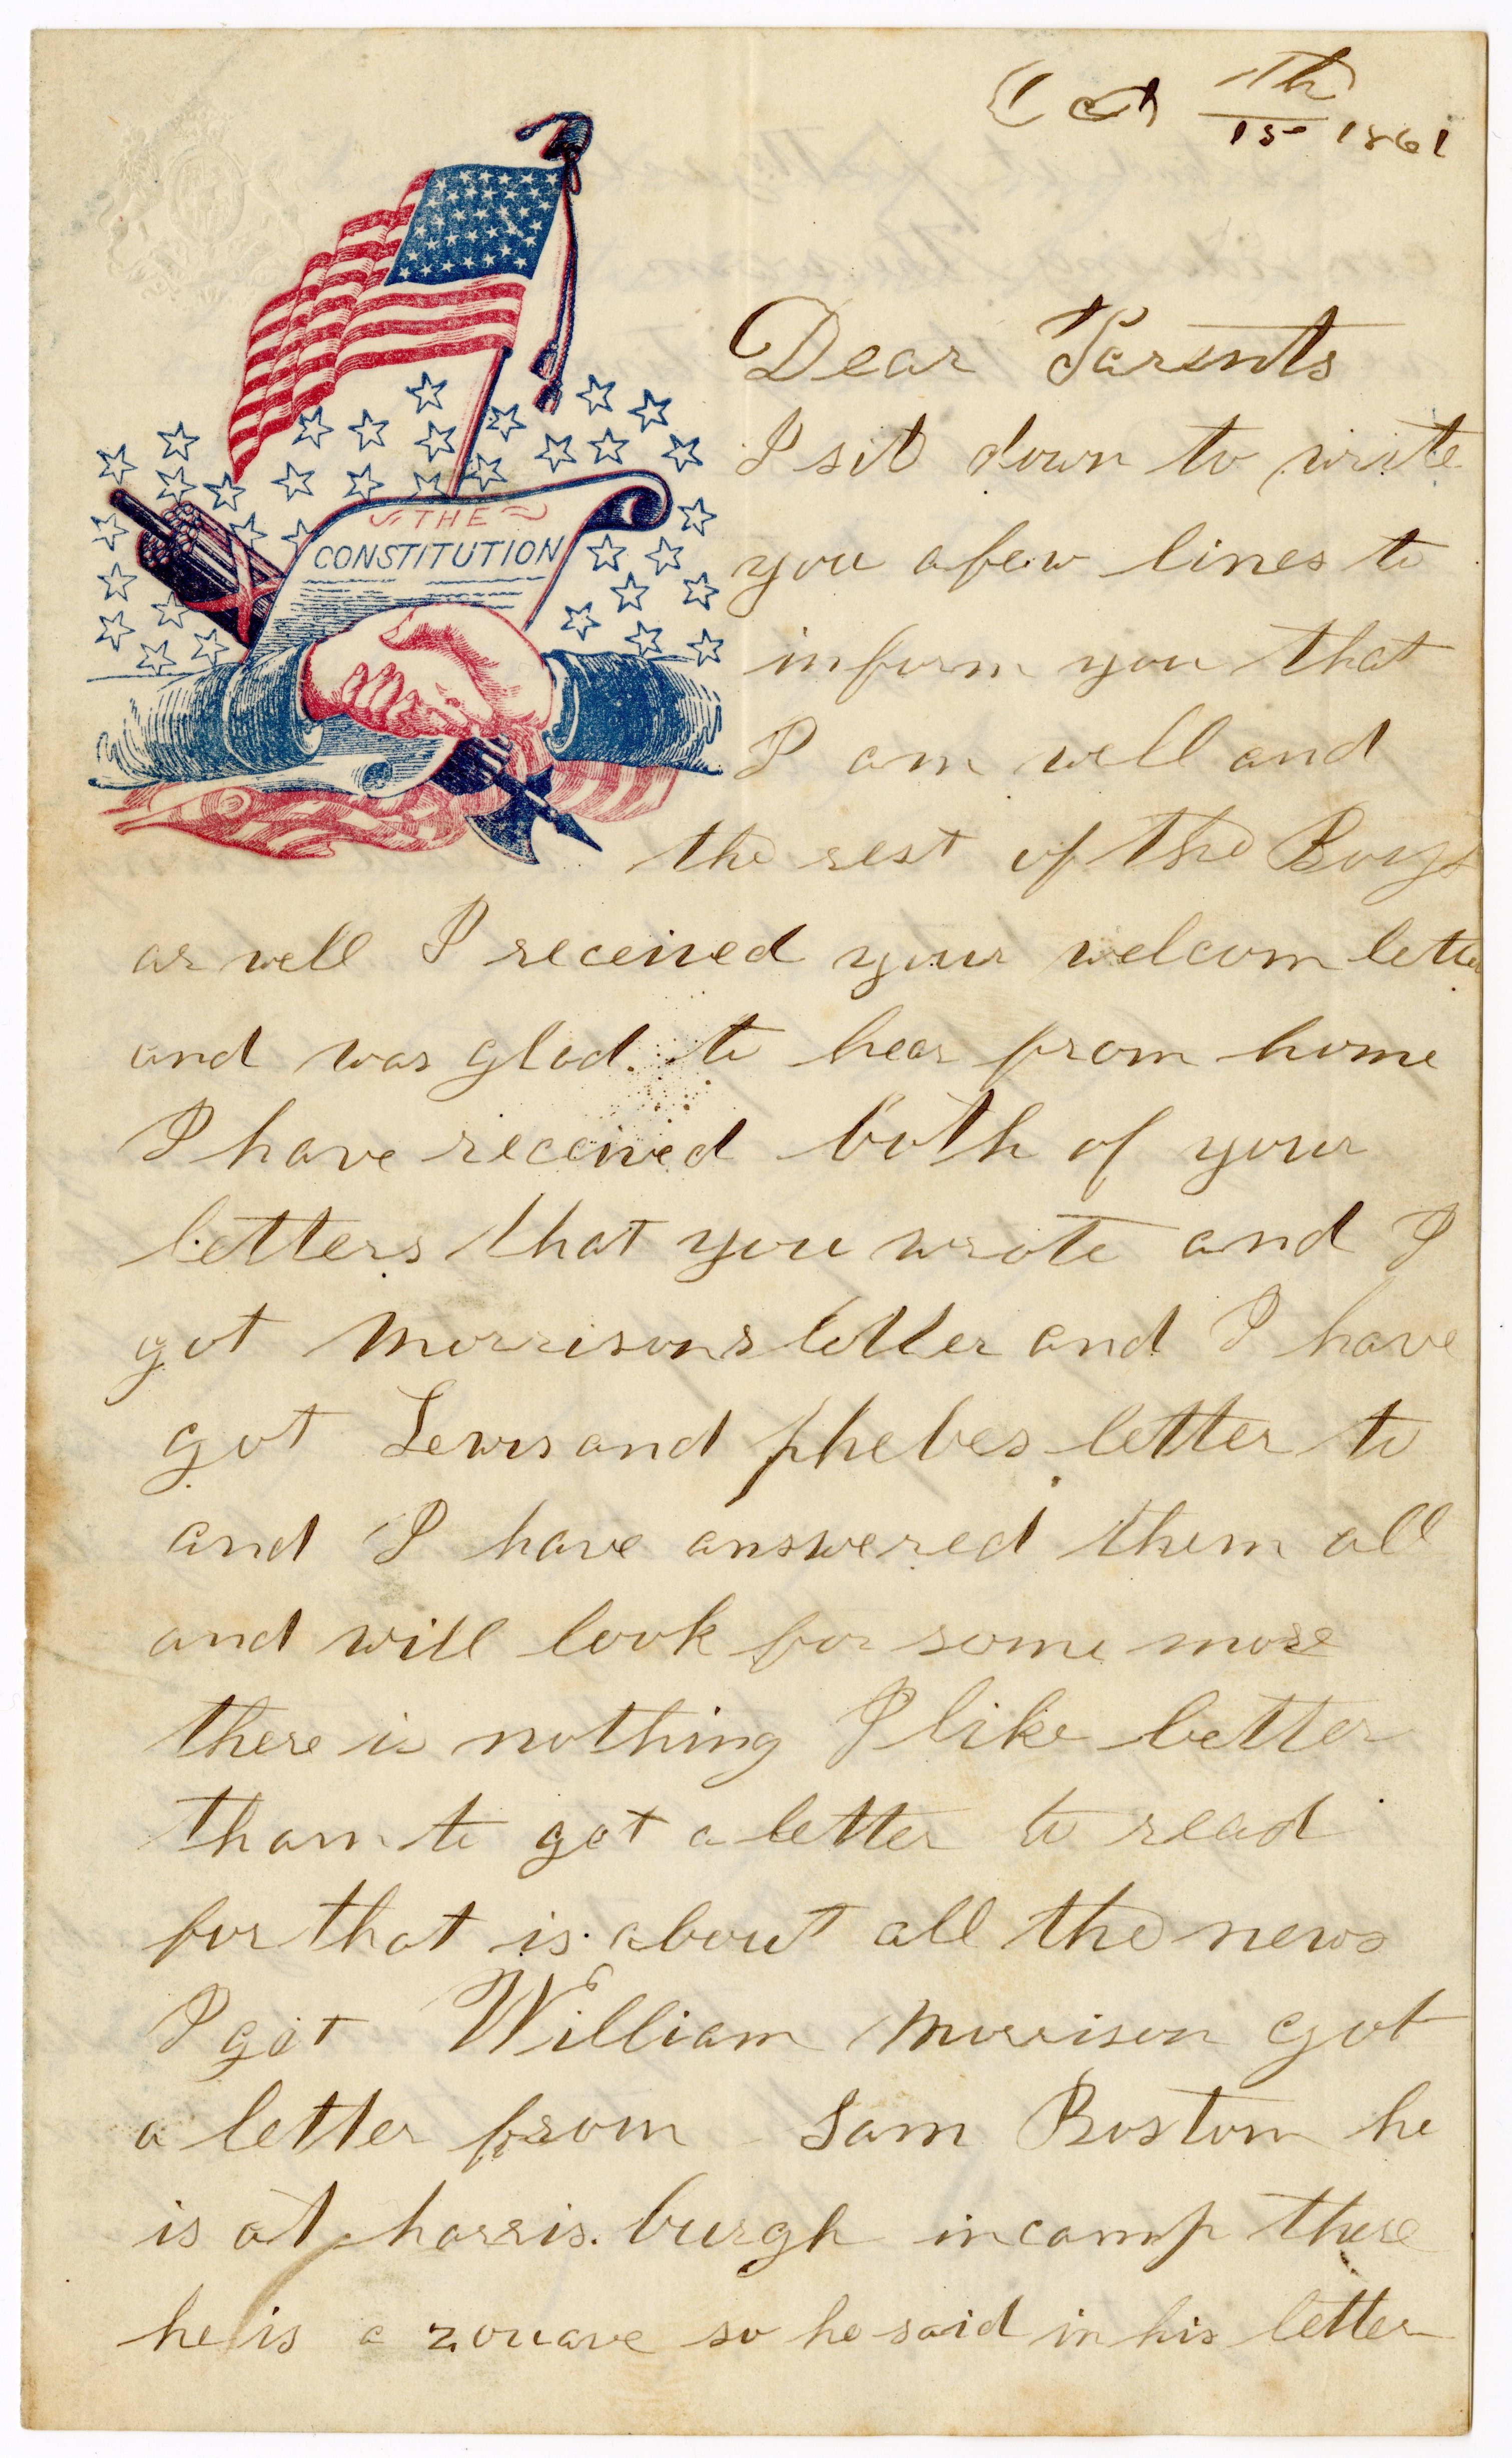 Oct 15th 1861
THE
CONSTITUTION
Dear Parents
I sit down to write
you a few lines to
inform you that
I am well and
the rest of the Boys
ar well I received your welcom letter
and was glad to hear from home
I have received both of your
letters that you wrote and I
got Morrisons letter and I have
got Lewis and phebes letter to
and I have answered them all
and will look for some more
there is nothing I like better
than to get a letter to read
for that is about all the news
I get William Morrison got
a letter from Sam Boston he
is at harris.burgh in camp there
he is a zouave so he said in his letter